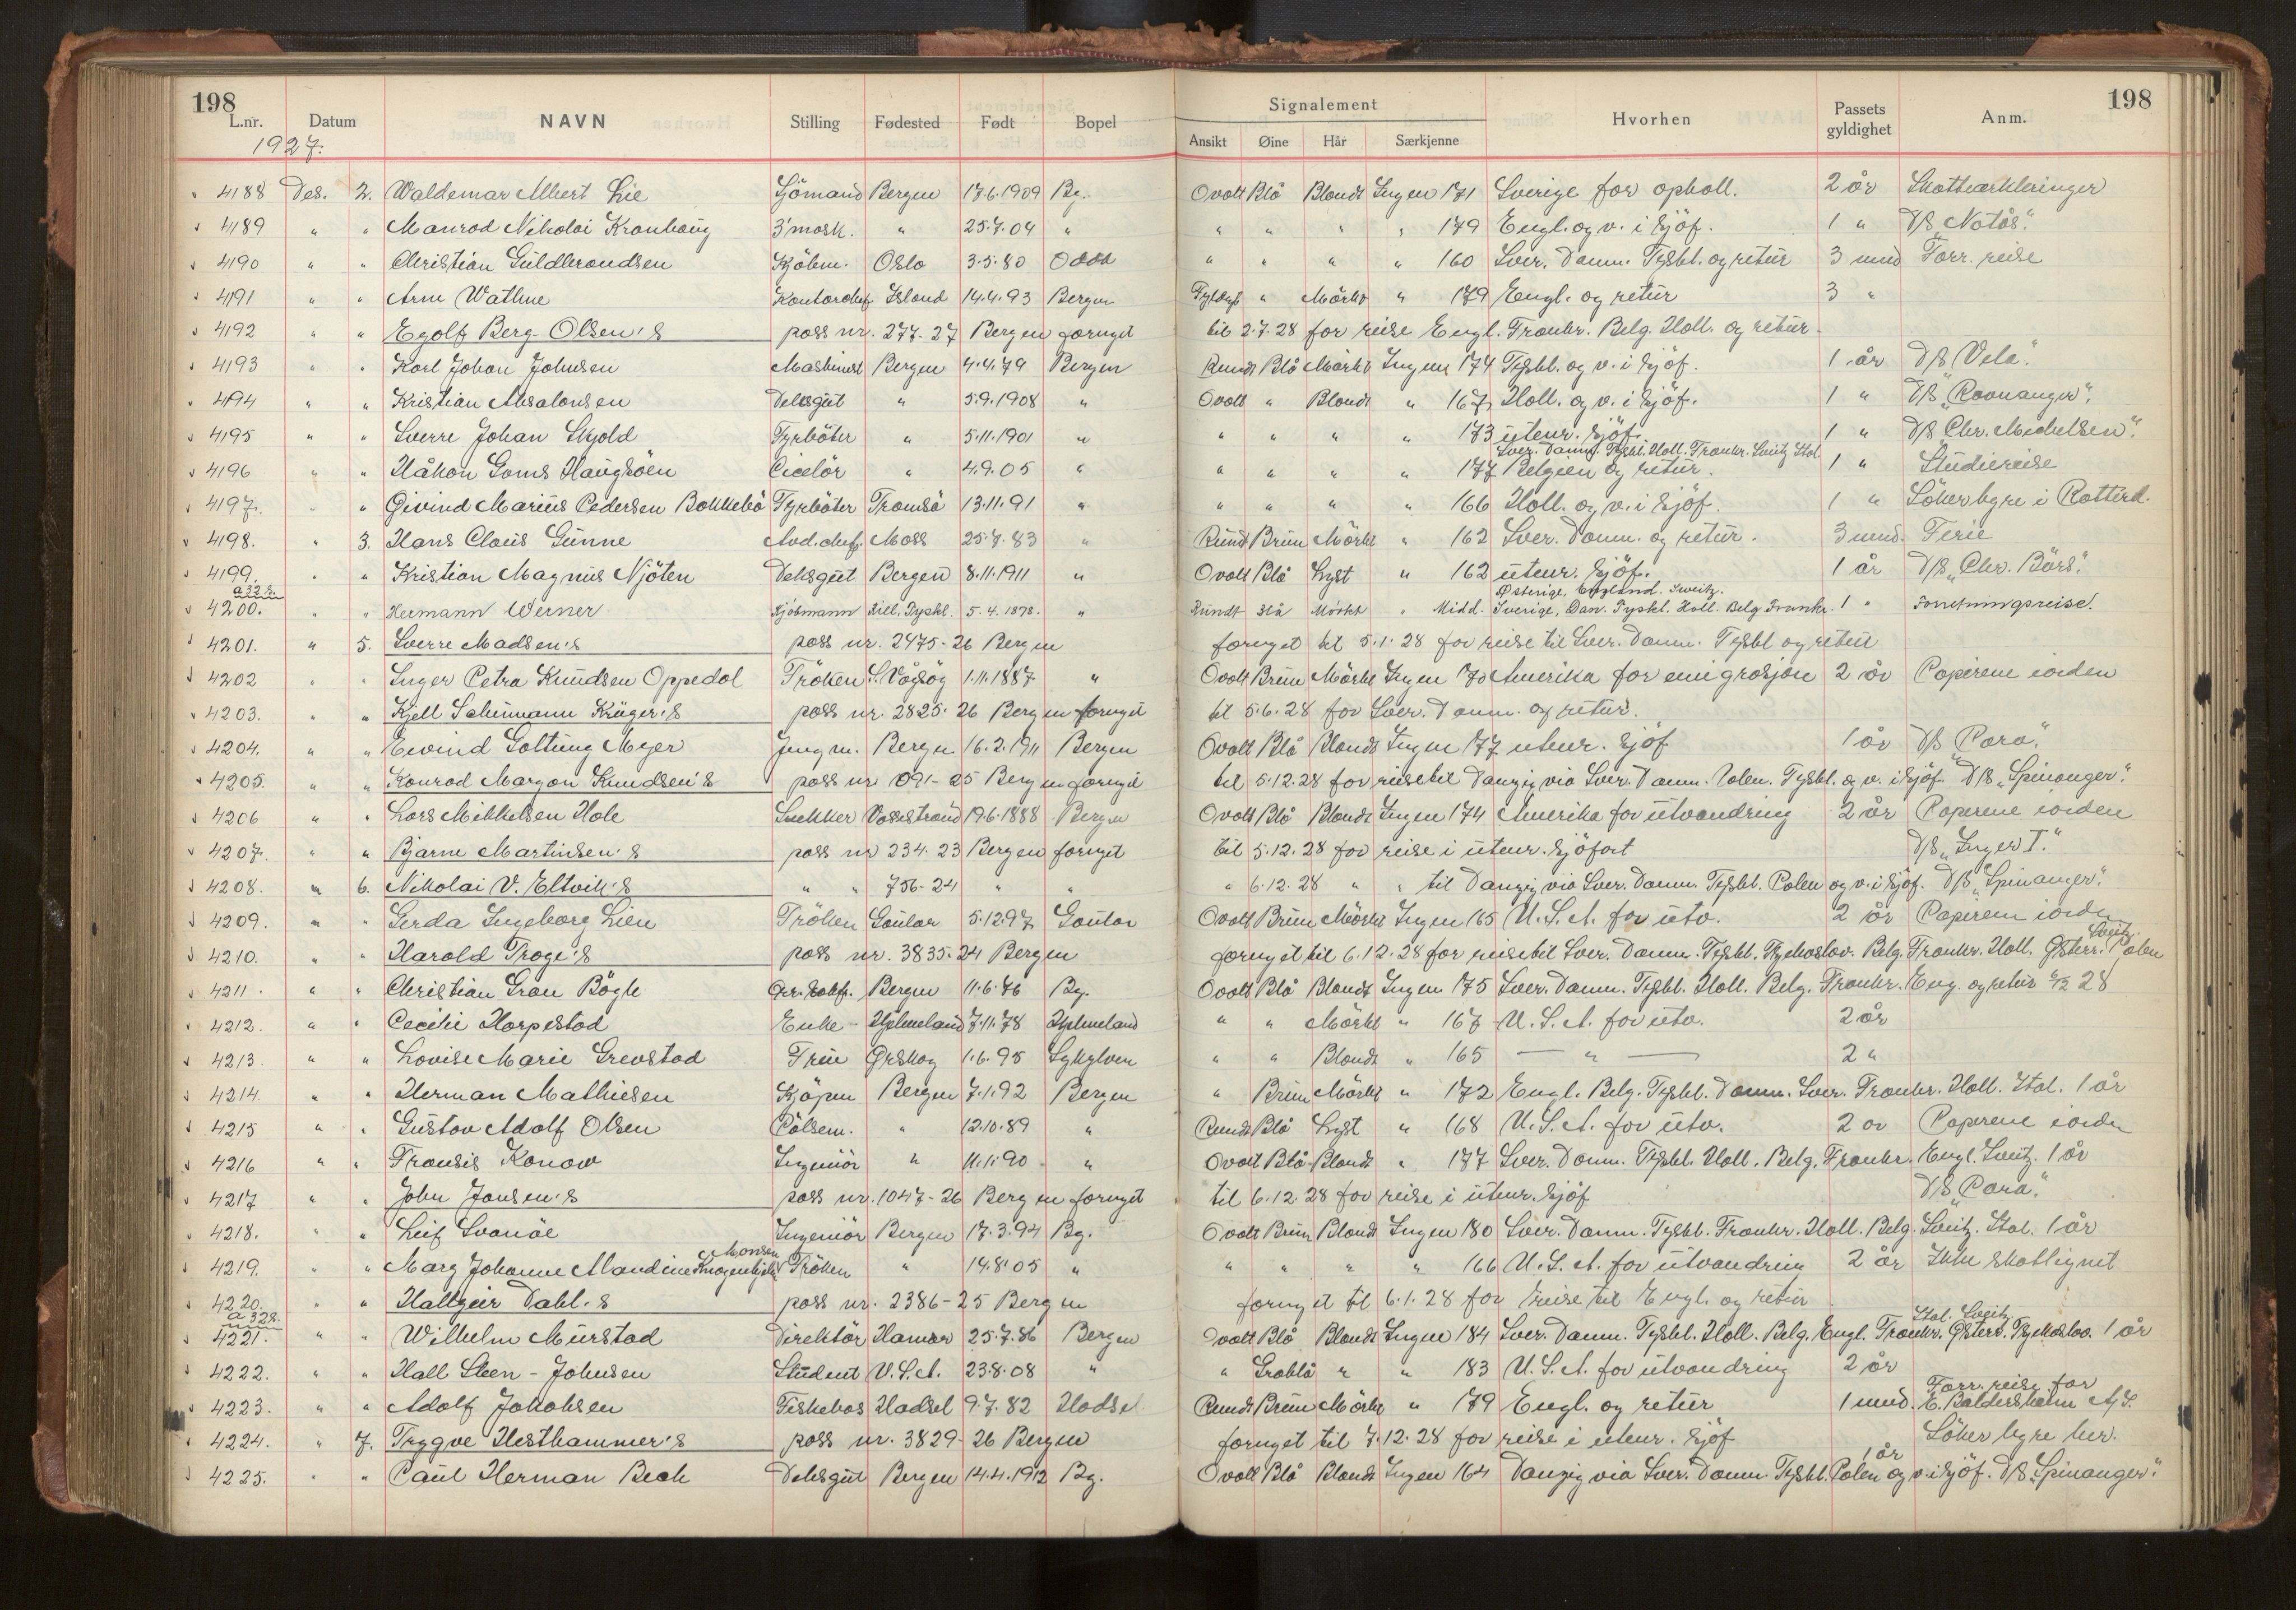 198
L.nr. Datum NAVN Stilling Fødested Født Bopel
Signalement
Ansikt Øine Hår Særkjenne Hvorhen Passets gyldighet Anm.
198
1927.
4188 Des. 2. Waldemar Albert Lie Sjömand Bergen 17.6.1909 Bg. Ovalt Blå Blondt Ingen 171 Sverige for ophold. 2 år Skatteerklæringer
4189 " " Manrad Nikolai Kronhaug 3' mask. " 25.7.04 " " " " " 179 Engl. og v. i sjöf. 1 " D/S "Notås".
4190 " " Christian Guldbrandsen Kjöbm. Oslo 3.5.80 Odda " " " " 160 Sver. Danm. Tyskl. og retur 3 mnd Forr. reise
4191 " " Arne Wathne Kontorchef Island 14.4.93 Bergen Fyldigt " Mörkt " 179 Engl. og retur 3 "
4192 " " Egolf Berg-Olsen's pass nr. 277-27 Bergen fornyet til 2.7.28 for reise Engl. Frankr. Belg. Holl. og retur.
4193 " " Karl Johan Johnsen Maskinist Bergen 4.4.79 Bergen Rundt Blå Mörkt Ingen 174 Tyskl. og v. i sjöf. 1 år D/S "Vela".
4194 " " Kristian Absalonsen Deksgut " 5.9.1908 " Ovalt " Blondt " 167 Holl. og v. i sjöf. 1 " D/S "Ravnanger".
4195 " " Sverre Johan Skjold Fyrböter " 5.11.1901 " " " " " 173 utenr. sjöf. 1 " D/S "Chr. Michelsen".
4196 " " Håkon Haugsöen Cicelör " 4.9.05 " " " " " 177 Sver. Danm. Tyskl. Holl. Frankr. Sveitz Ital. Belgien og retur. 1 " Studiereise
4197. " " Öivind Marius Pedersen Bakkebö Fyrböter Tromsö 13.11.91 " " " " " 166 Holl. og v. i sjöf. 1 " Söker hyre i Rotterd.
4198. " 3. Hans Claus Gunne Avd. chef. Moss 25.7.83 " Rund Brun Mörkt " 162 Sver. Danm. og retur. 3 mnd. Ferie
4199. " " Kristian Magnus Njöten Deksgut Bergen 8.11.1911 " Ovalt Blå Lyst " 162 utenr. sjöf. 1 år D/S "Chr. Börs".
a 328. Østerige, England. Sweitz.
4200. " " Hermann Werner Kjöbmann Kiel, Tyskl. 5.4.1878. " Rundt Blå Mörkt " Midd. Sverige, Dan. Tyskl. Holl. Belg. Frankr. 1 " Forretningsreise.
4201. " 5. Sverre Madsen's pass nr. 2475-26 Bergen fornyet til 5.1.28 for reise til Sver. Danm. Tyskl og retur
4202 " " Inger Petra Knudsen Oppedal Fröken S. Vågsöy 1.11.1887 " Ovalt Brun Mörkt Ingen 170 Amerika for emigrasjon 2 år Papirene iorden
4203. " " Kjell Schumann Krüger's pass nr. 2825-26 Bergen fornyet til 5.6.28 for Sver. Danm. og retur.
4204. " " Eivind Meyer Jungm. Bergen 16.2.1911 Bergen Ovalt Blå Blondt Ingen 177 utenr. sjöf 1 år D/S "Cara".
4205. " " Konrad Margon Knudsen's pass nr. 091-25 Bergen fornyet til 5.12.28 for reise til Danzig via Sver. Danm. Polen. Tyskl. og v. i sjöf. D/S "Spinanger".
4206 " " Lars Mikkelsen Hole Snekker Vossestrand 19.6.1888 Bergen Ovalt Blå Blondt Ingen 174 Amerika for utvandring 2 år Papirene iorden
4207. " " Bjarne Martinsen's pass nr 234-23 Bergen fornyet til 5.12.28 for reise i utenr. sjöfart D/S "Inger I".
4208. " 6. Nikolai V. Eltvik's " " 756-24 " " " 6.12.28 " " til Danzig via Sver. Danm. Tyskl. Polen og v. i sjöf. D/S "Spinanger".
4209. " " Gerda Ingeborg Lien Fröken Gaular 5.12.97 Gaular Ovalt Brun Mörkt Ingen 165 U.S.A. for utv. 2 år Papirene iorden
4210. " " Harald Troge's pass nr. 3835-24 Bergen fornyet til 6.12.28 for reise til Sver. Danm. Tyskl. Tjekoslov. Belg. Frankr. Holl. Østerr. Sveitz. Polen
4211. " " Christian Gran Bögh Bergen 11.6.76 Bg. Ovalt Blå Blondt Ingen 175 Sver. Danm. Tyskl. Holl. Belg. Frankr. Eng. og retur 6/12 28
4212. " " Cecilie Harpestad Enke Hjelmeland 7.11.78 Hjelmeland " " Mörkt " 167 U.S.A. for utv. 2 år
4213. " " Lovise Marie Grevstad Frue Ørskog 1.6.95 Sykylven " " Blondt " 165 — " — 2 "
4214. " " Herman Mathiesen Kjöpm Bergen 7.1.92 Bergen " Brun Mörkt " 172 Engl. Belg. Tyskl. Danm. Sver. Frankr. Holl. Ital. 1 år
4215 " " Gustav Adolf Olsen Pölsem. " 12.10.89 " Rundt Blå Lyst " 168 U.S.A. for utv. 2 år Papirene iorden
4216 " " Fransis Konow Ingeniör " 11.1.90 " Ovalt Blå Blondt " 177 Sver. Danm. Tyskl. Holl. Belg. Frankr. Engl. Sveitz. 1 år
4217 " " John Jansen's pass nr. 1047-26 Bergen fornyet til 6.12.28 for reise i utenr. sjöf D/S "Cara".
4218. " " Leif Svanöe Ingeniör Bergen 17.3.94 Bg. Ovalt Brun Blondt Ingen 180 Sver. Danm. Tyskl. Frankr. Holl. Belg. Sveitz. Ital. 1 år
4219. " " Marg Johanne Alandine Monsen Fröken " 14.8.05 " " " " " 166 U.S.A. for utvandring 2 år Ikke skattlignet
4220. " " Hallgeir Dahl's pass nr. 2386-25 Bergen fornyet til 6.1.28 for reise til Engl. og retur
a 328. Ital. Sveitz
4221. " " Wilhelm Mürstad Direktör Hamar 25.7.86 Bergen Ovalt Blå Blondt Ingen 184 Sver. Danm. Tyskl. Holl. Belg. Engl. Frankr. Østerr. Tjekoslov. 1 år
4222. " " Hall Steen-Johnsen Student U.S.A. 23.8.08 " " Gråblå " " 183 U.S.A. for utvandring 2 år
4223. " " Adolf Jakobsen Fiskebas Hadsel 9.7.82 Hadsel Rundt Brun Mörkt " 179 Engl. og retur 1 mnd. Forr. reise for E. Baldersheim A/S.
4224. " 7. Trygve Hesthammer's pass nr. 3829-26 Bergen fornyet til 7.12.28 for reise i utenr. sjöf Söker hyre her.
4225. " " Paul Herman Bech Deksgut Bergen 14.4.1912 Bg. Ovalt Blå Blondt Ingen 164 Danzig via Sver. Danm. Tyskl. Polen og v. i sjöf. 1 år D/S "Spinanger".